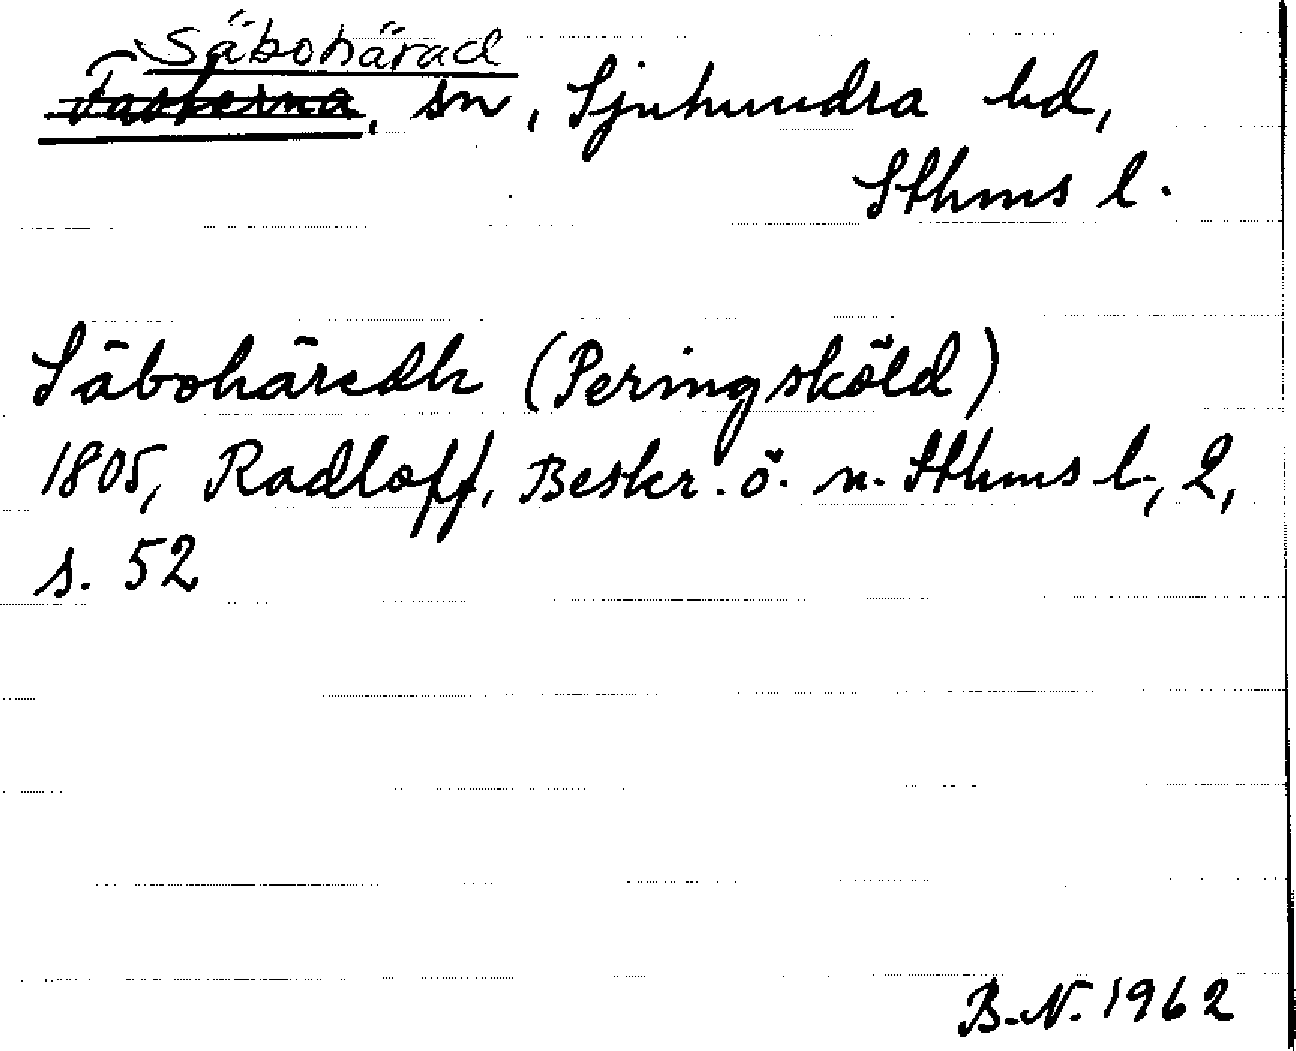 Säbohärad
Fasterna, sn, Sjuhundra hd,
Sthms l.
Säbohäredh (Peringsköld)
1805, Radloff, Beskr. ö. n. Sthms l., 2,
s. 52
B.N. 1962